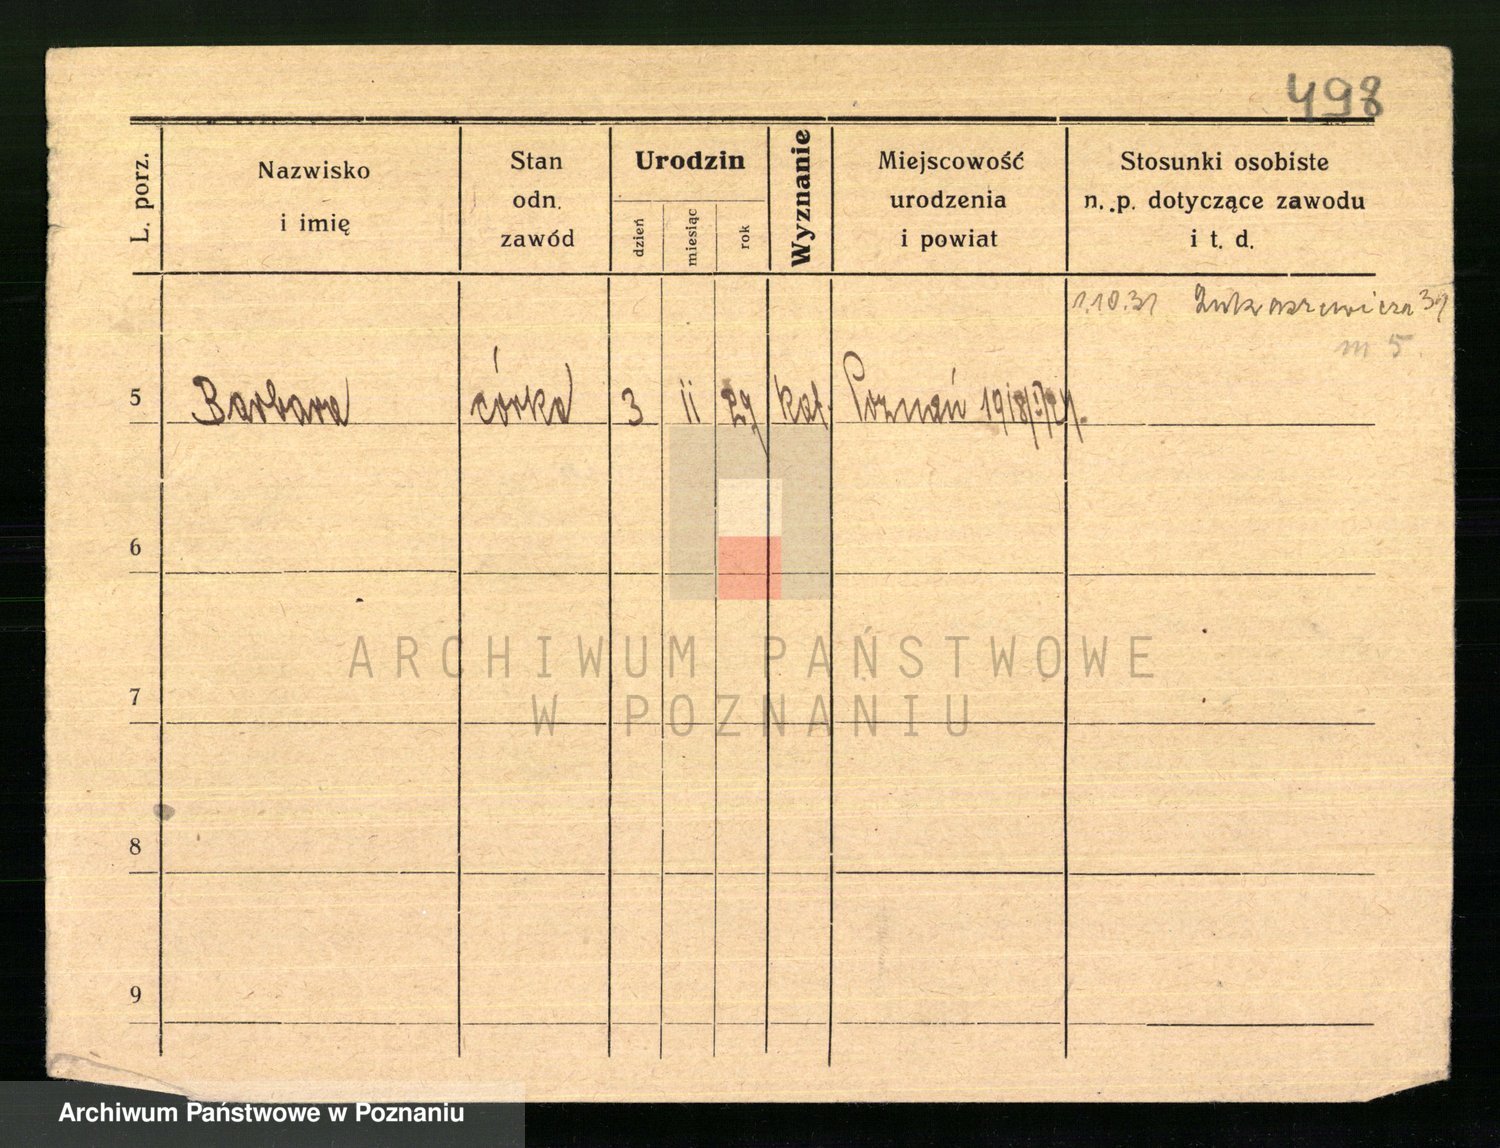 498
L. porz.
Nazwisko
i imię
Stan
odn.
zawód
Urodzin
dzień
miesiąc
rok
Wyznanie
Miejscowość
urodzenia
i powiat
Stosunki osobiste
n. p. dotyczące zawodu
i t. d.
1.10.31 Łukaszewicza 39
m 5.
5 Barbara córka 3 11 29 kat. Poznań
6
7
8
9
ARCHIWUM PAŃSTWOWE
W POZNANIU
Archiwum Państwowe w Poznaniu